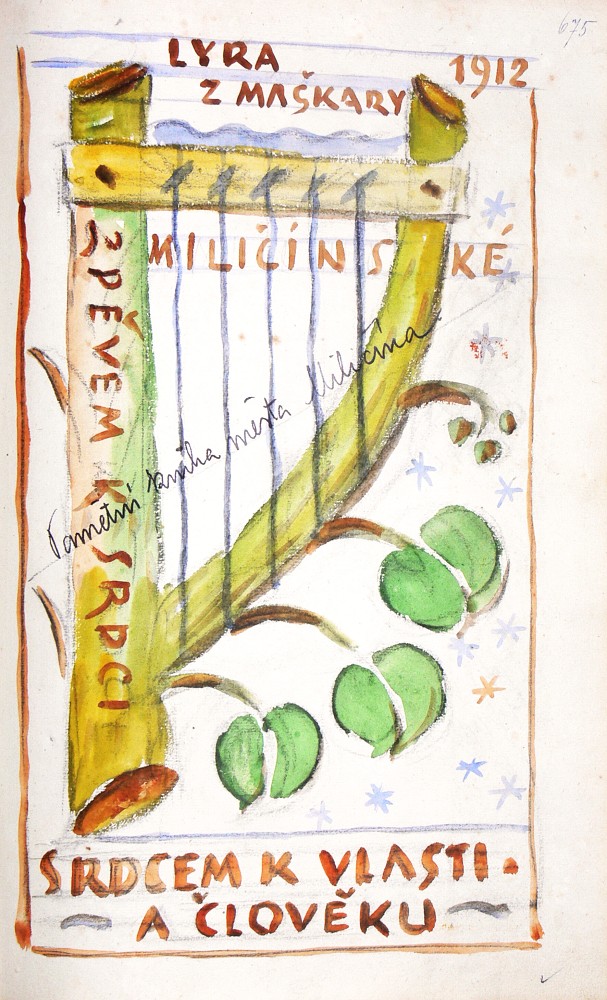 675
LYRA
1912
Z MAŠKARY
MILIČÍNSKÉ
ZPĚVEM K SRDCI
Pamětní kniha města Miličína
SRDCEM K VLASTI.
A ČLOVĚKU